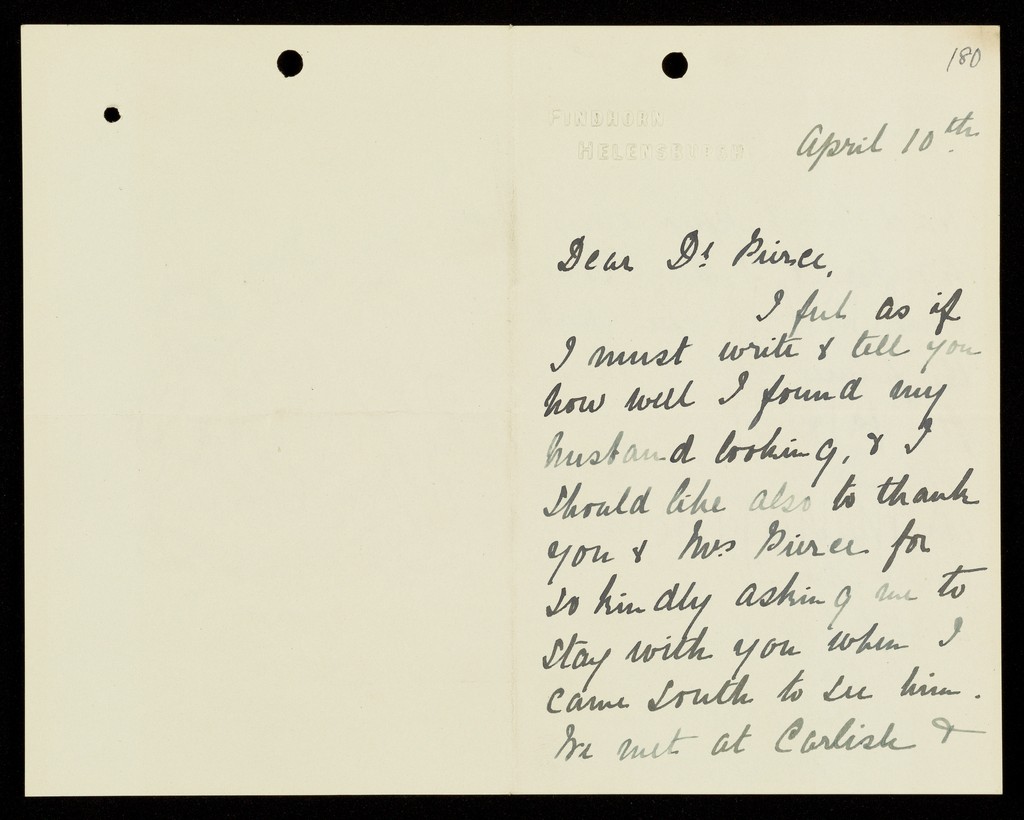 180
FINDHORN
HELENSBURGH
April 10th
Dear Dr Pierce,
I felt as if
I must write & tell you
how well I found my
husband looking, & I
should like also to thank
you & Mrs Pierce for
so kindly asking me to
stay with you when I
came South to see him.
We met at Carlisle &